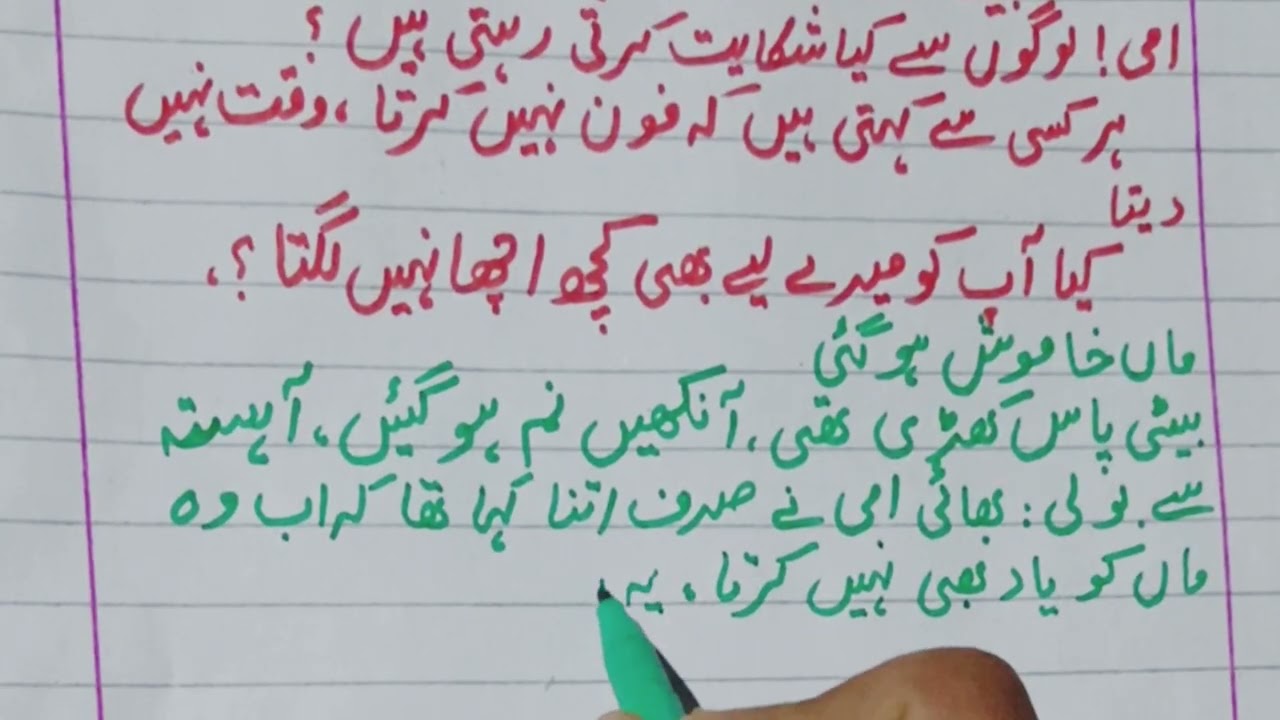 امی! لوگوں سے کیا شکایت کرتی رہتی ہیں ؟
ہر کسی سے کہتی ہیں کہ فون نہیں کرتا ، وقت نہیں
دیتا
کیا آپ کو میرے لیے بھی کچھ اچھا نہیں لگتا ؟،
ماں خاموش ہوگئی
بیٹی پاس کھڑی تھی ، آنکھیں نم ہو گیئں ، آہستہ
سے بولی : بھائی امی نے صرف اتنا کہا تھا کہ اب وہ
ماں کو یاد بھی نہیں کرتا ، یہ